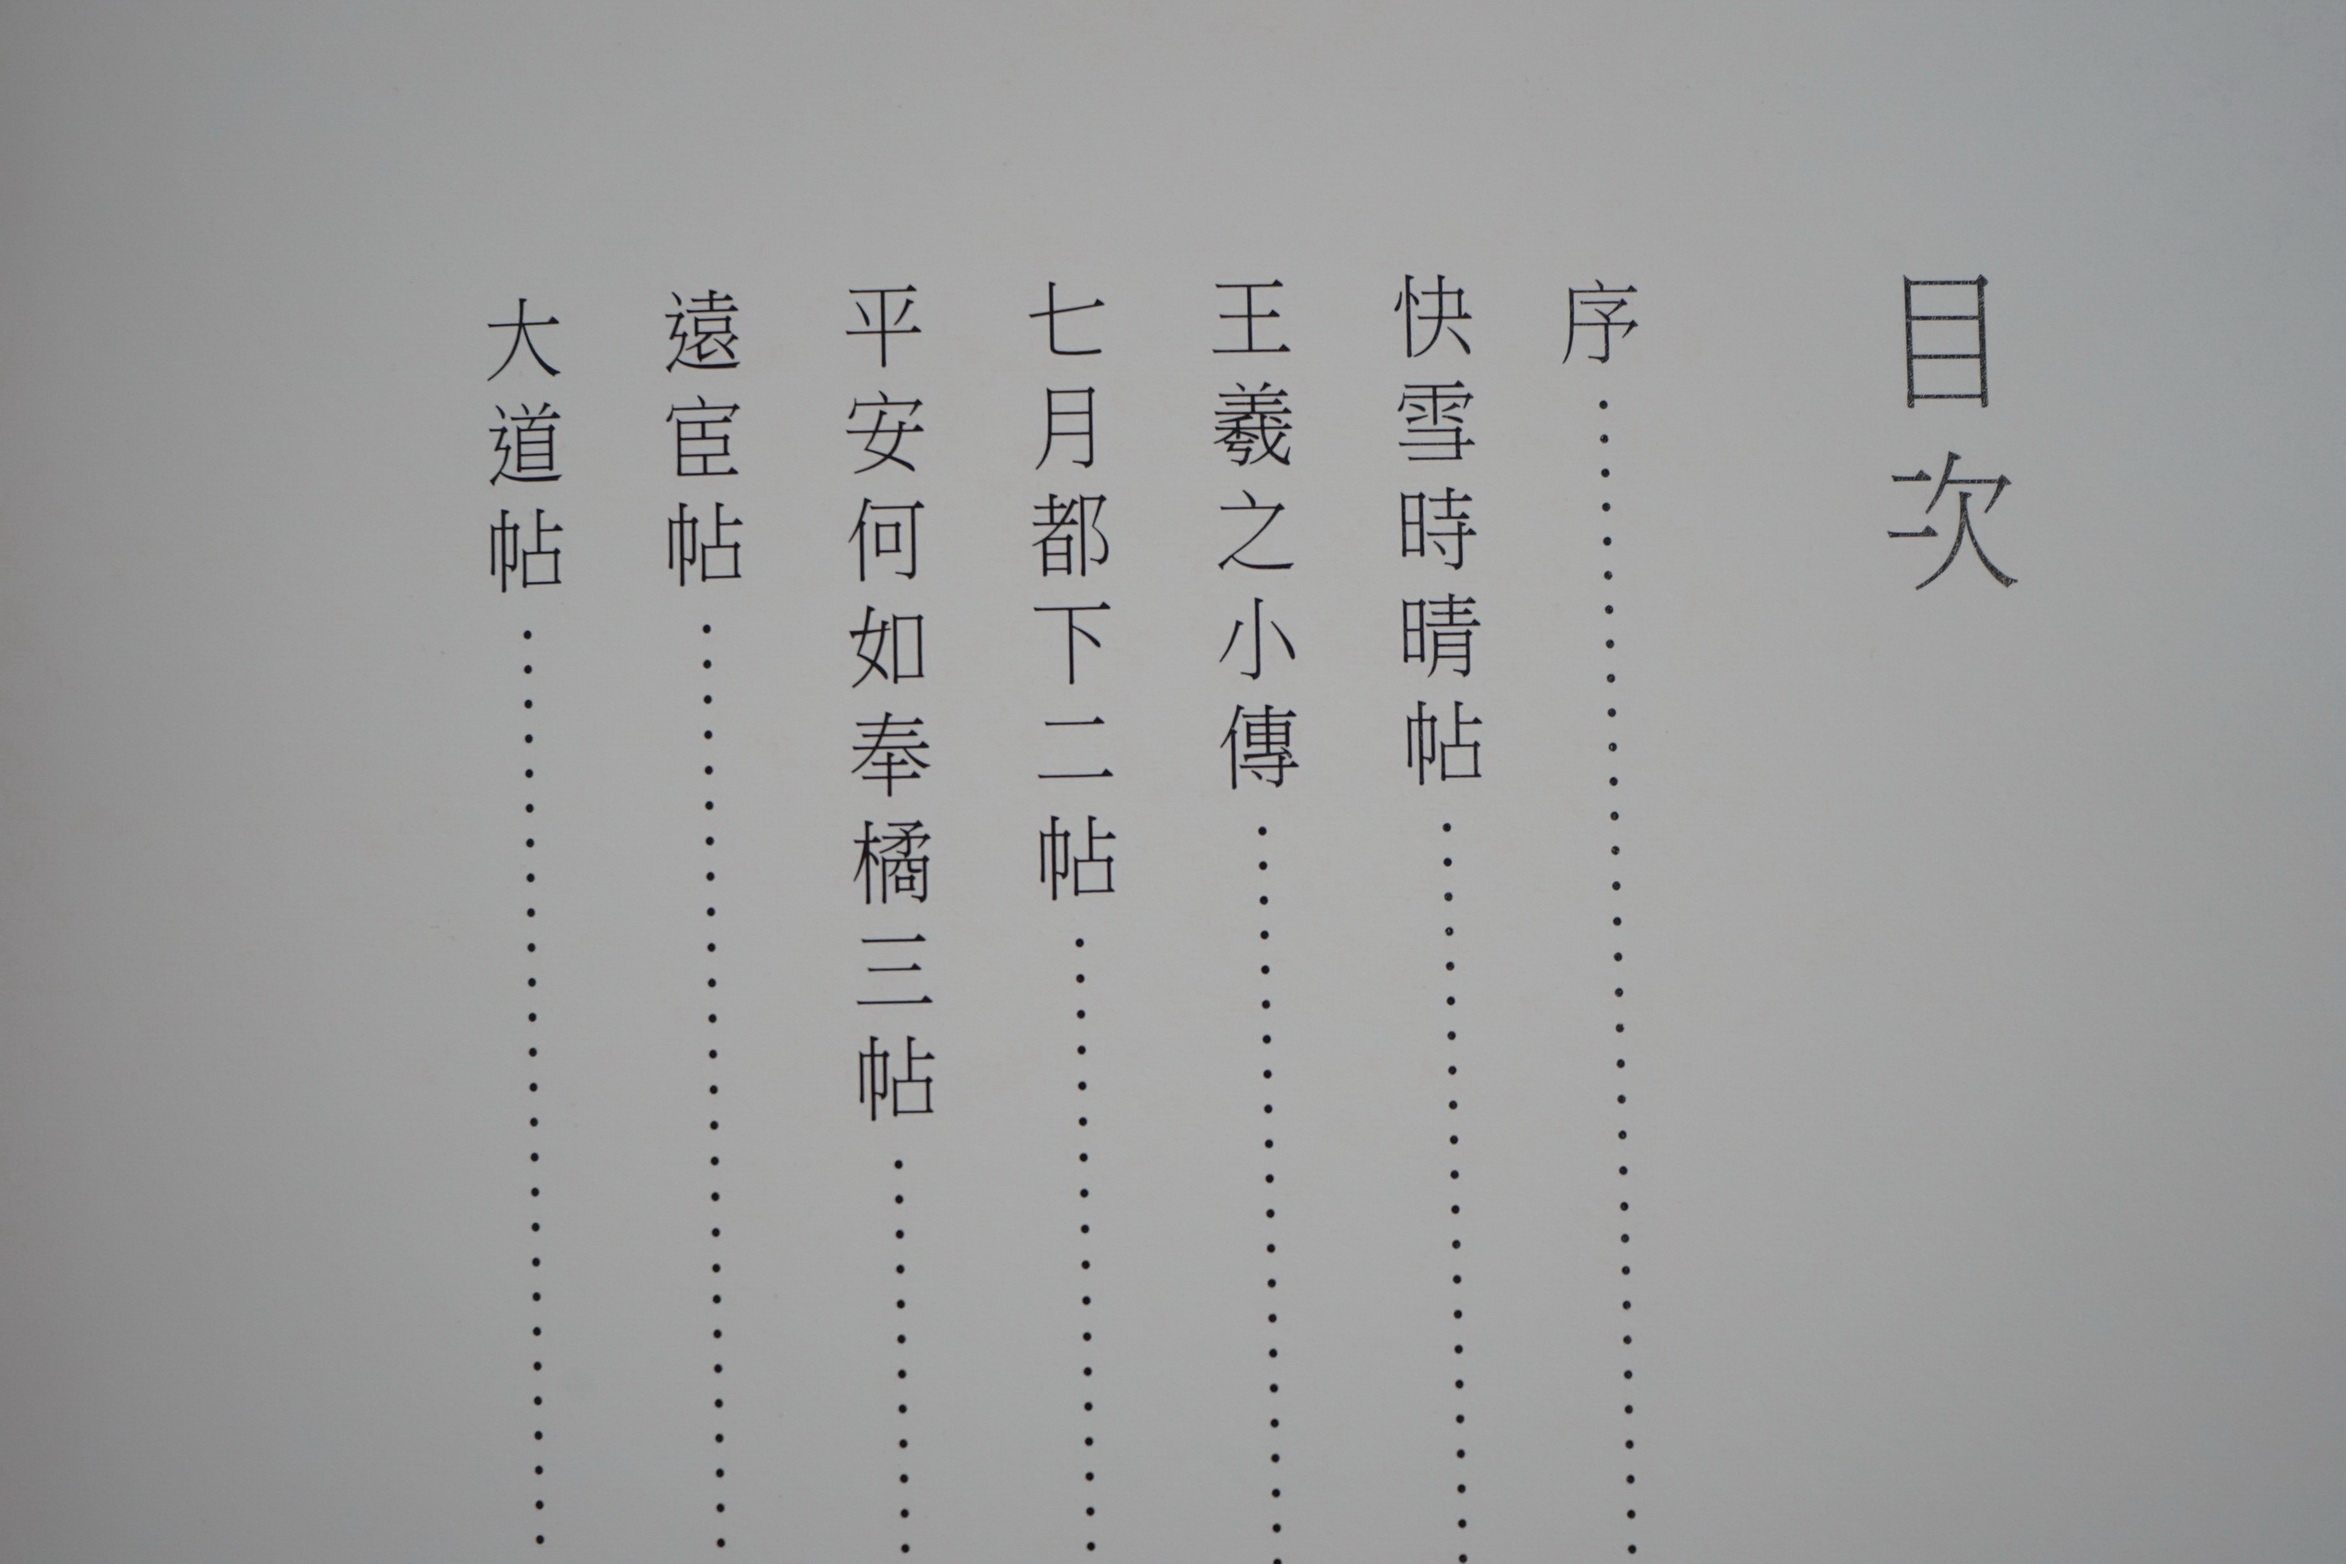 目次
序
快雪時晴帖
王羲之小傳
七月都下二帖
平安何如奉橘三帖
遠宦帖
大道帖